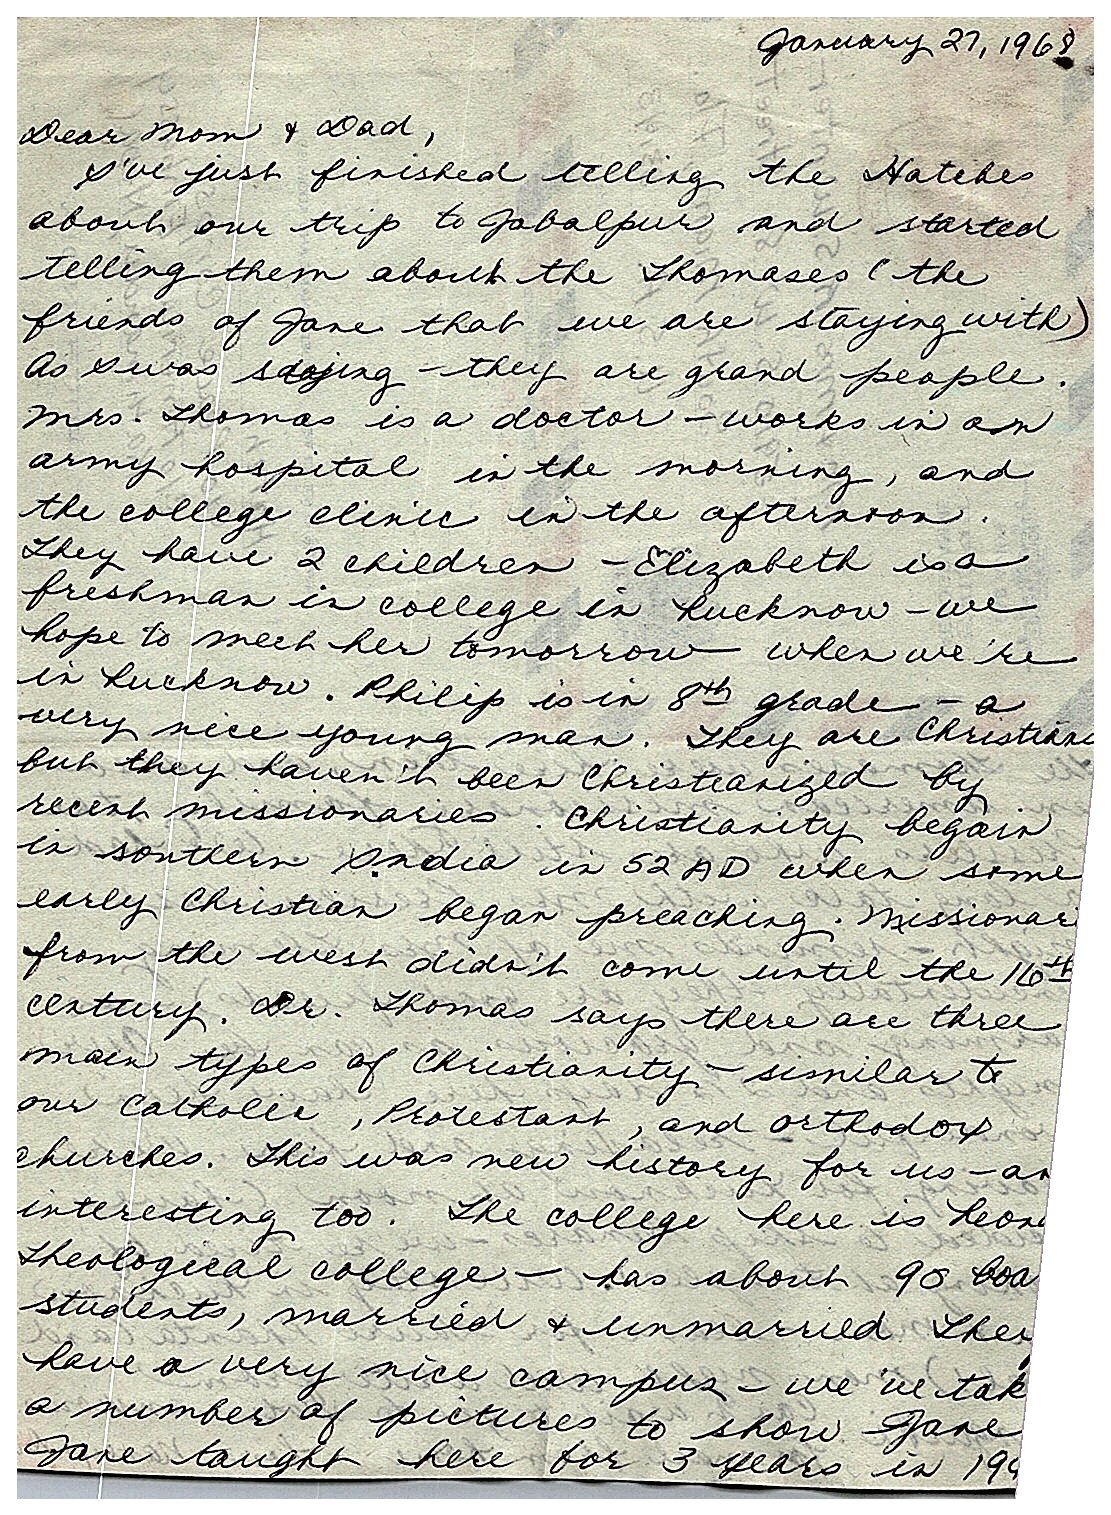 January 27, 1968
Dear Mom & Dad,
I've just finished telling the Hatches
about our trip to Jabalpur and started
telling them about the Thomases (the
friends of Jane that we are staying with)
As I was saying - they are grand people.
Mrs. Thomas is a doctor - works in an
army hospital in the morning, and
the college clinic in the afternoon.
They have 2 children - Elizabeth is a
freshman in college in Lucknow - we
hope to meet her tomorrow when we're
in Lucknow. Philip is in 8th grade - a
very nice young man. They are Christians
but they haven't been Christianized by
recent missionaries. Christianity begain
in southern India in 52 AD when some
early Christian began preaching. Missionari
from the west didn't come until the 16th
century. Dr. Thomas says there are three
main types of Christianity - similar to
our Catholic, Protestant, and orthodox
churches. This was new history for us - an
interesting too. The college here is Leon
Theological college - has about 90
students, married & unmarried. They
have a very nice campus - we've tak
a number of pictures to show Jane
Jane taught here for 3 years in 194